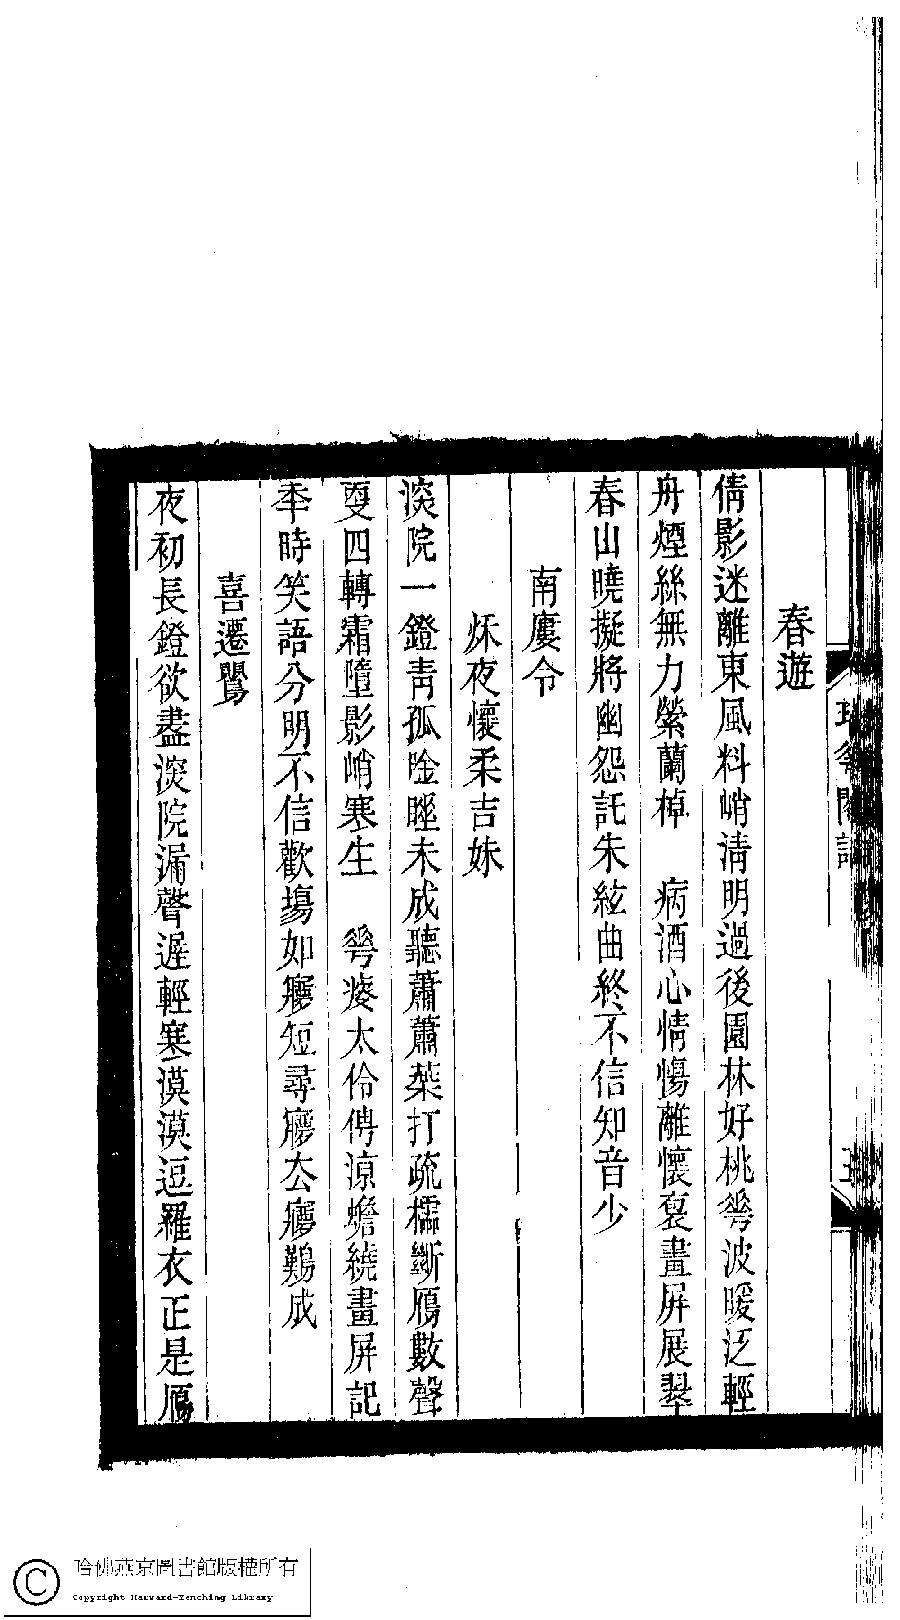 春遊
倩影迷離東風料峭淸明過後園林好桃芲波暖泛輕
舟煙絲無力縈蘭棹　病酒心情惕離懷裏畫屏展翠
春山曉擬將幽怨託朱絃曲終不信知音少
南廔令
秌夜懷柔吉妹
淡院一鐙靑孤唫睡未成聽蕭蕭葉打疏櫺斷鴈數聲
更四轉霜墮影峭寒生　芲瘦太伶俜涼蟾繞畫屏記
秊時笑語分明不信歡塲如㝱短尋㝱去㝱難成
喜遷鶯
夜初長鐙欲盡深院漏聲遲輕寒漠漠逗羅衣正是鴈
哈佛燕京圖書館版權所有
Copyright Harvard-Yenching Library